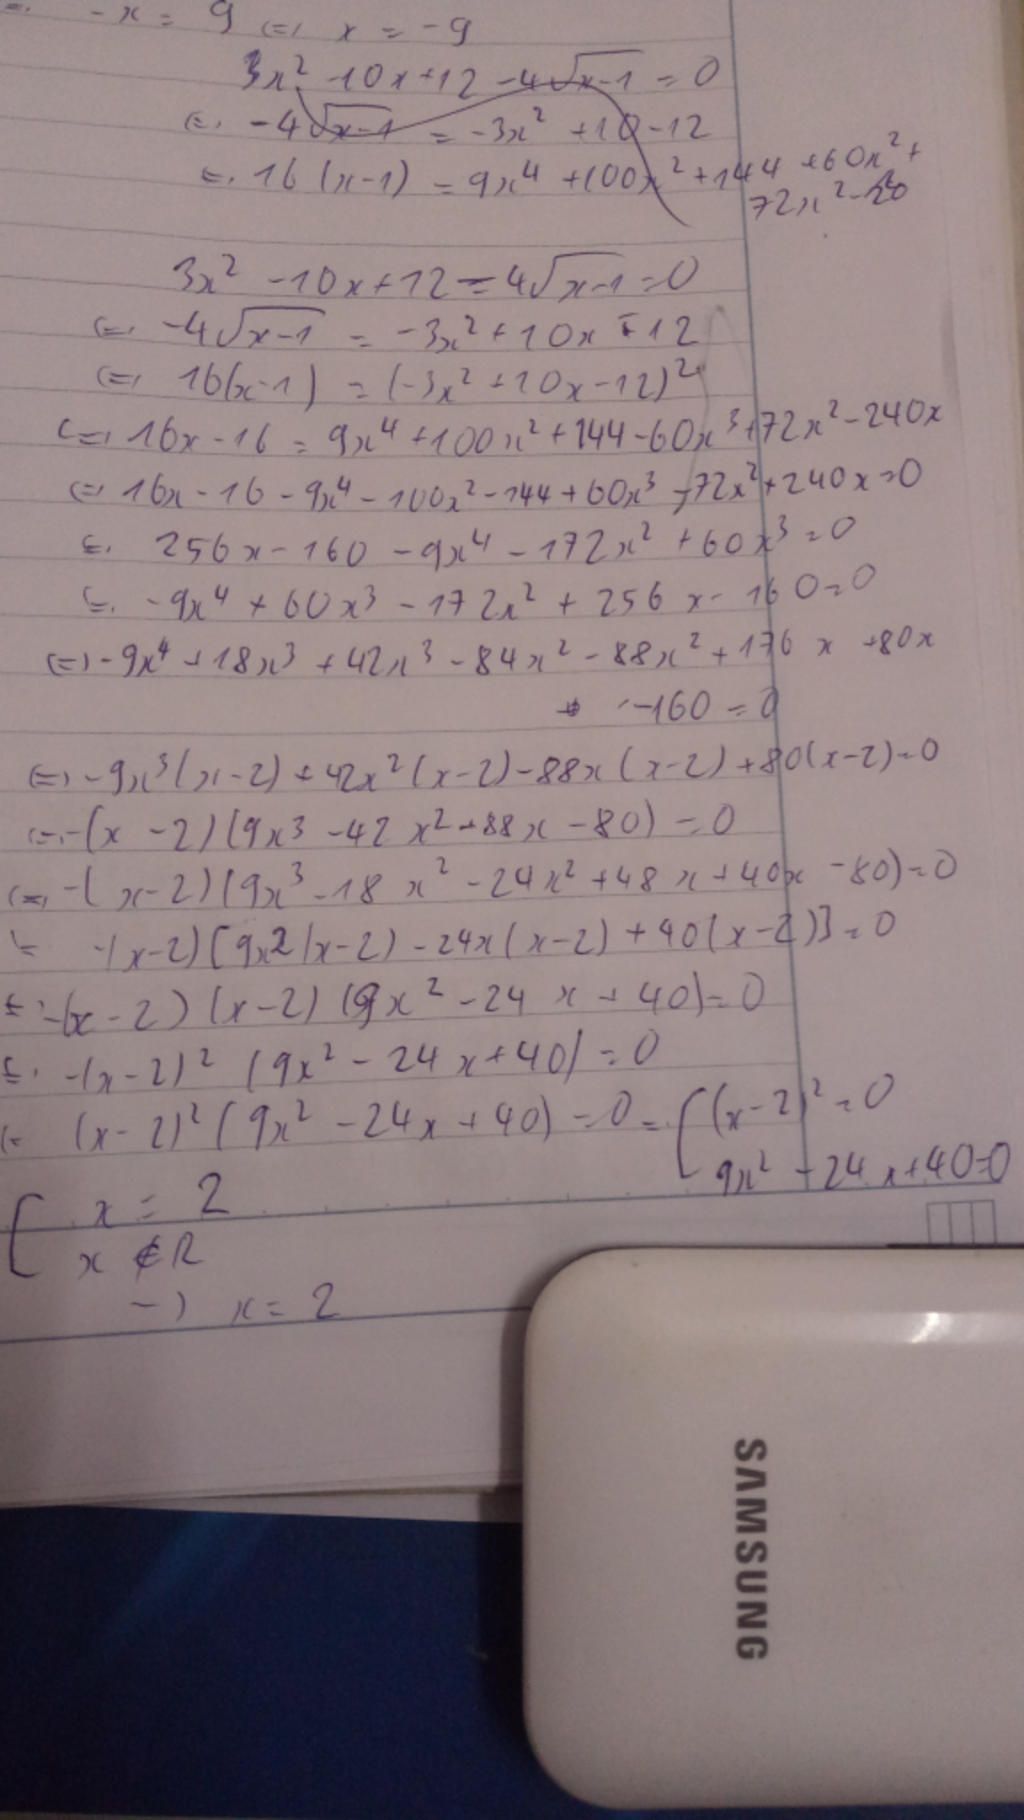 -x = 9 <=> x = -9
3x² -10x+12 -4√x-1 = 0
<=> -4√x-1 = -3x² +10-12
<=> 16(x-1) = 9x⁴ +100x² +144 +60x² +
72x² -20
3x² -10x+12 -4√x-1 =0
<=> -4√x-1 = -3x² +10x -12
<=> 16(x-1) = (-3x² +10x-12)²
<=> 16x-16 = 9x⁴ +100x² +144-60x³ +72x² -240x
<=> 16x-16-9x⁴ -100x² -144+60x³ -72x² +240x=0
<=> 256x-160 -9x⁴ -172x² +60x³ =0
<=> -9x⁴ +60x³ -172x² +256x-160=0
<=> -9x⁴ +18x³ +42x³ -84x² -88x² +176x +80x
-160=0
<=> -9x³(x-2) +42x²(x-2)-88x(x-2)+80(x-2)=0
<=> -(x-2)(9x³ -42x² +88x-80)=0
<=> -(x-2)(9x³ -18x² -24x² +48x+40x-80)=0
<=> -(x-2)[9x2(x-2)-24x(x-2)+40(x-2)]=0
<=> -(x-2)(x-2)(9x² -24x+40)=0
<=> -(x-2)² (9x² -24x+40)=0
<=> (x-2)² (9x² -24x+40)=0 = [ (x-2)² =0
9x² -24x+40=0
[ x = 2
x ∉ R
-> x = 2
SAMSUNG